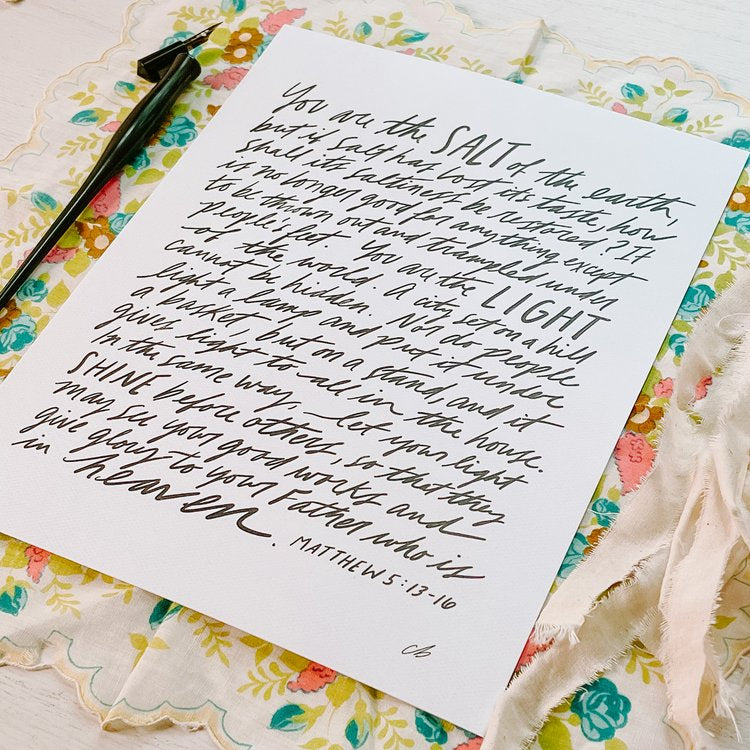 You are the SALT of the earth,
but if salt has lost its taste, how
shall its saltiness be restored? It
is no longer good for anything except
to be thrown out and trampled under
people's feet. You are the LIGHT
of the world. A city set on a hill
cannot be hidden. Nor do people
light a lamp and put it under
a basket, but on a stand, and it
gives light to all in the house.
In the same way, let your light
SHINE before others, so that they
may see your good works and
give glory to your Father who is
in heaven.
MATTHEW 5:13-16
cb